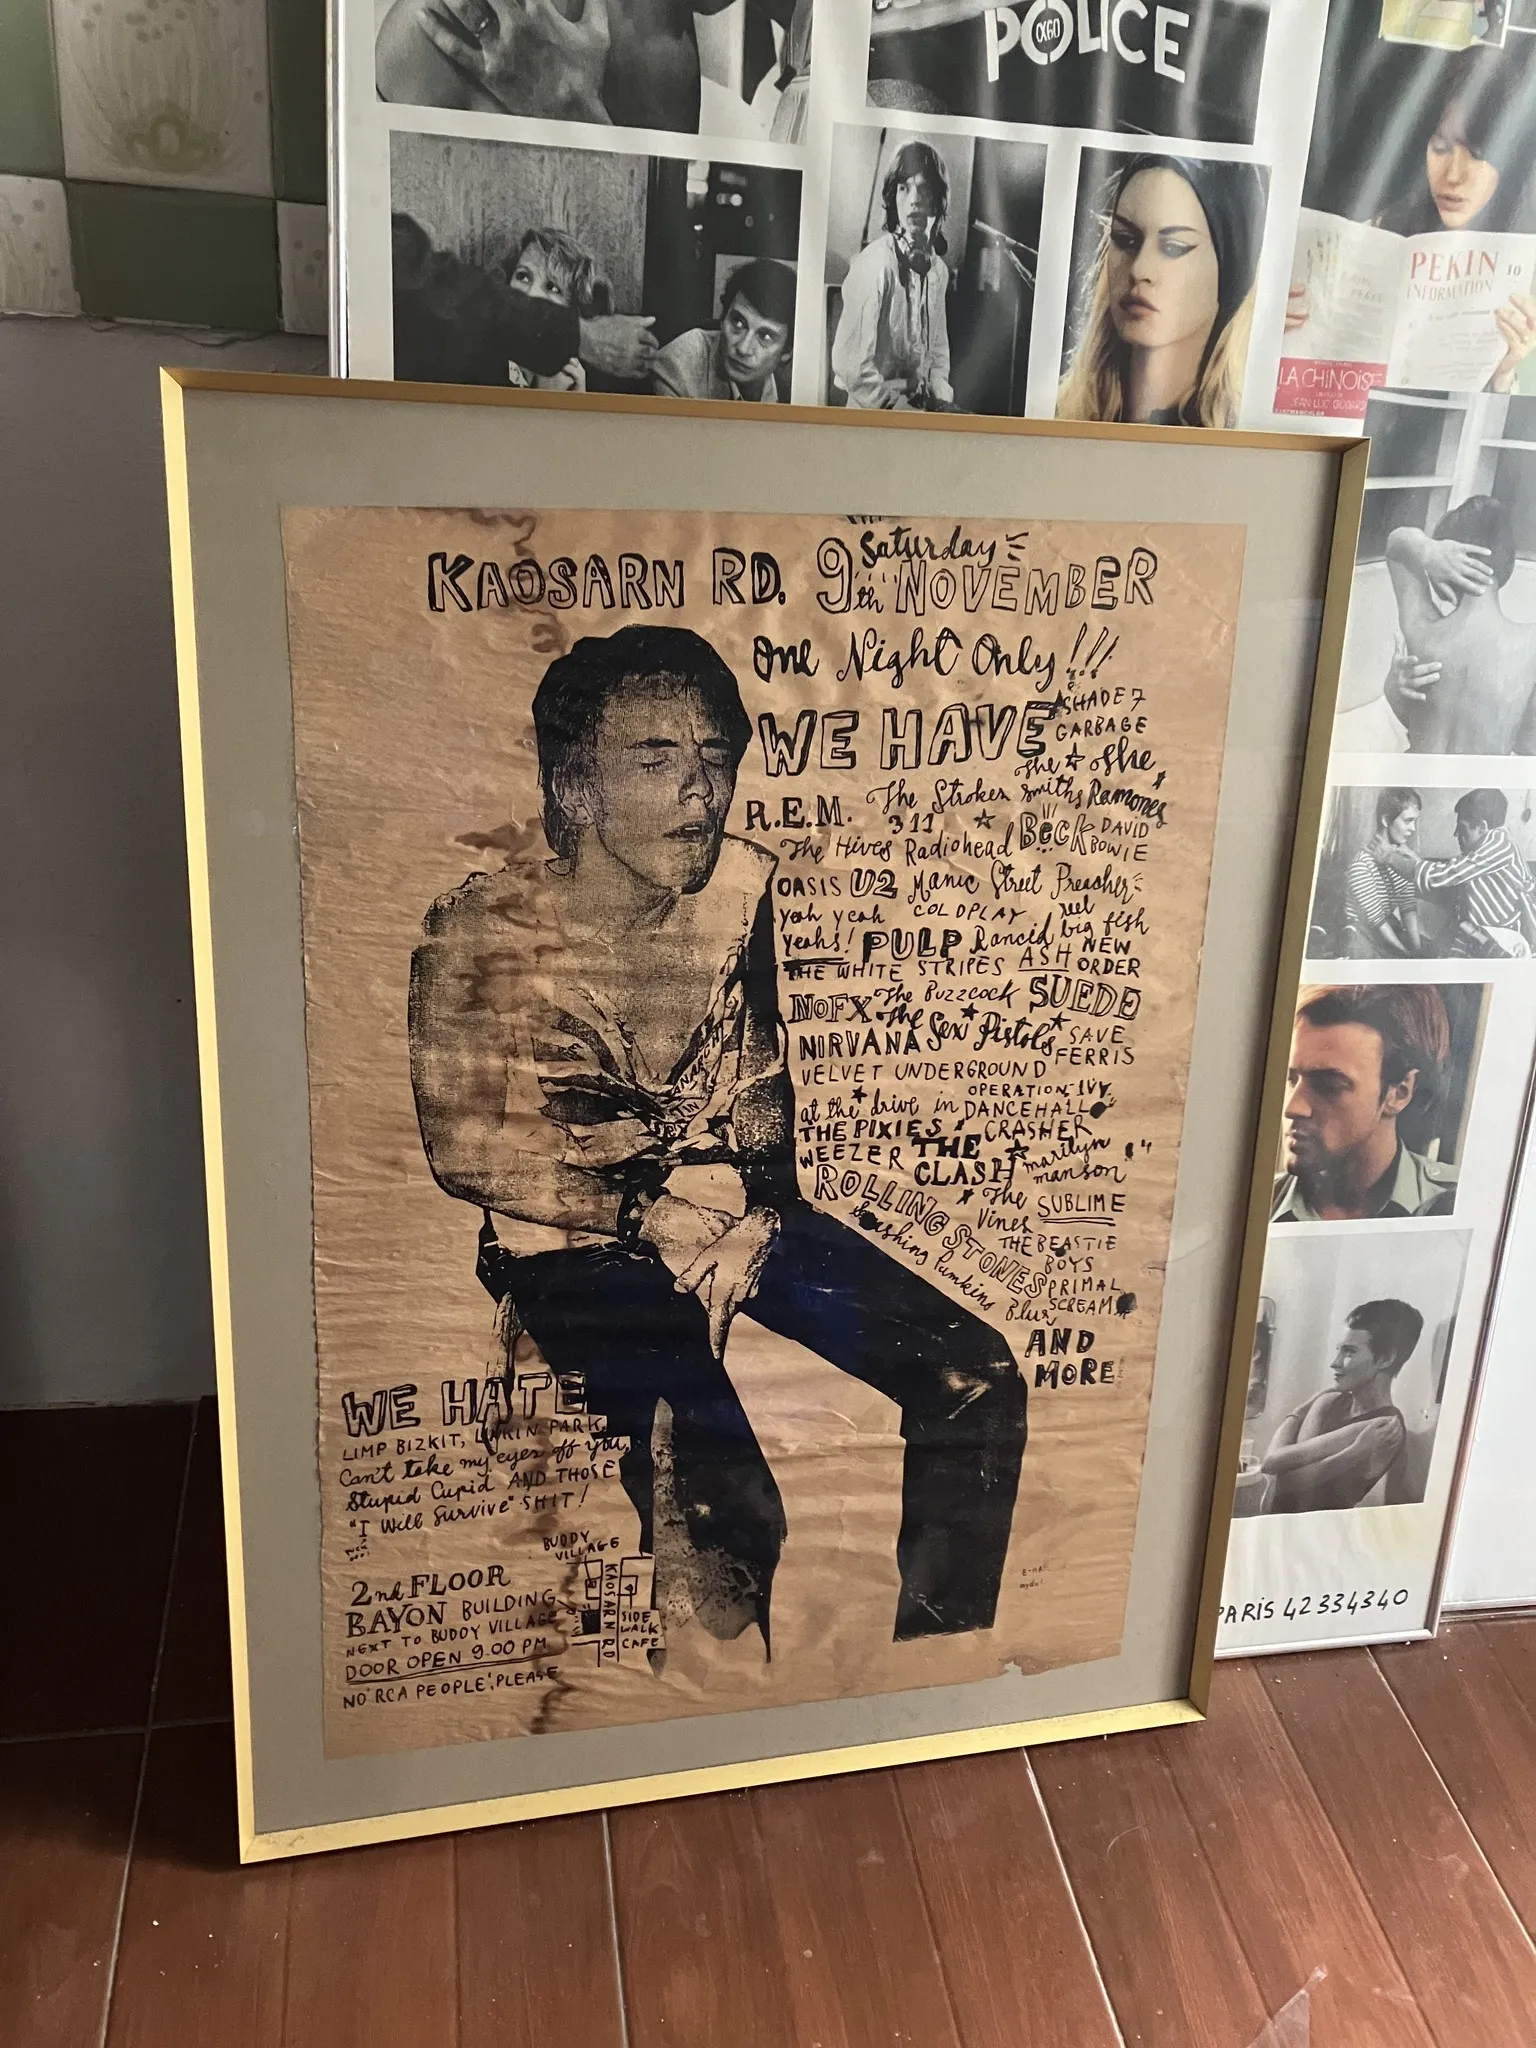 POLICE
α60
PEKIN
INFORMATION
10
LA CHINOISE
JEAN-LUC GODARD
KAOSARN RD. 9th NOVEMBER
Saturday
One Night Only!!!
WE HAVE
SHADE 7
GARBAGE
The
she
R.E.M. The Strokes smiths Ramones
311
The Hives Radiohead Beck DAVID
BOWIE
OASIS U2 Manic Street Preacher
yeah yeah COLDPLAY reel
yeahs! PULP Rancid big fish
THE WHITE STRIPES ASH NEW
ORDER
NOFX The Buzzcock SUEDE
NIRVANA The Sex Pistols SAVE
FERRIS
VELVET UNDERGROUND
OPERATION IVY
at the drive in DANCEHALL
THE PIXIES CRASHER
WEEZER THE
CLASH marilyn
manson
ROLLING STONES
The
Vines SUBLIME
THE BEASTIE
BOYS
smashing Pumkins
PRIMAL
SCREAM
Blur
AND
MORE
ANARCHY
IN
WE HATE
LIMP BIZKIT, LINKIN PARK,
Can't take my eyes off you,
Stupid Cupid AND THOSE
"I Will Survive" SHIT!
BUDDY
VILLAGE
KAOSARN RD
SIDE
WALK
CAFE
2nd FLOOR
BAYON BUILDING
NEXT TO BUDDY VILLAGE
DOOR OPEN 9.00 PM
NO 'RCA PEOPLE', PLEASE
PARIS 42334340